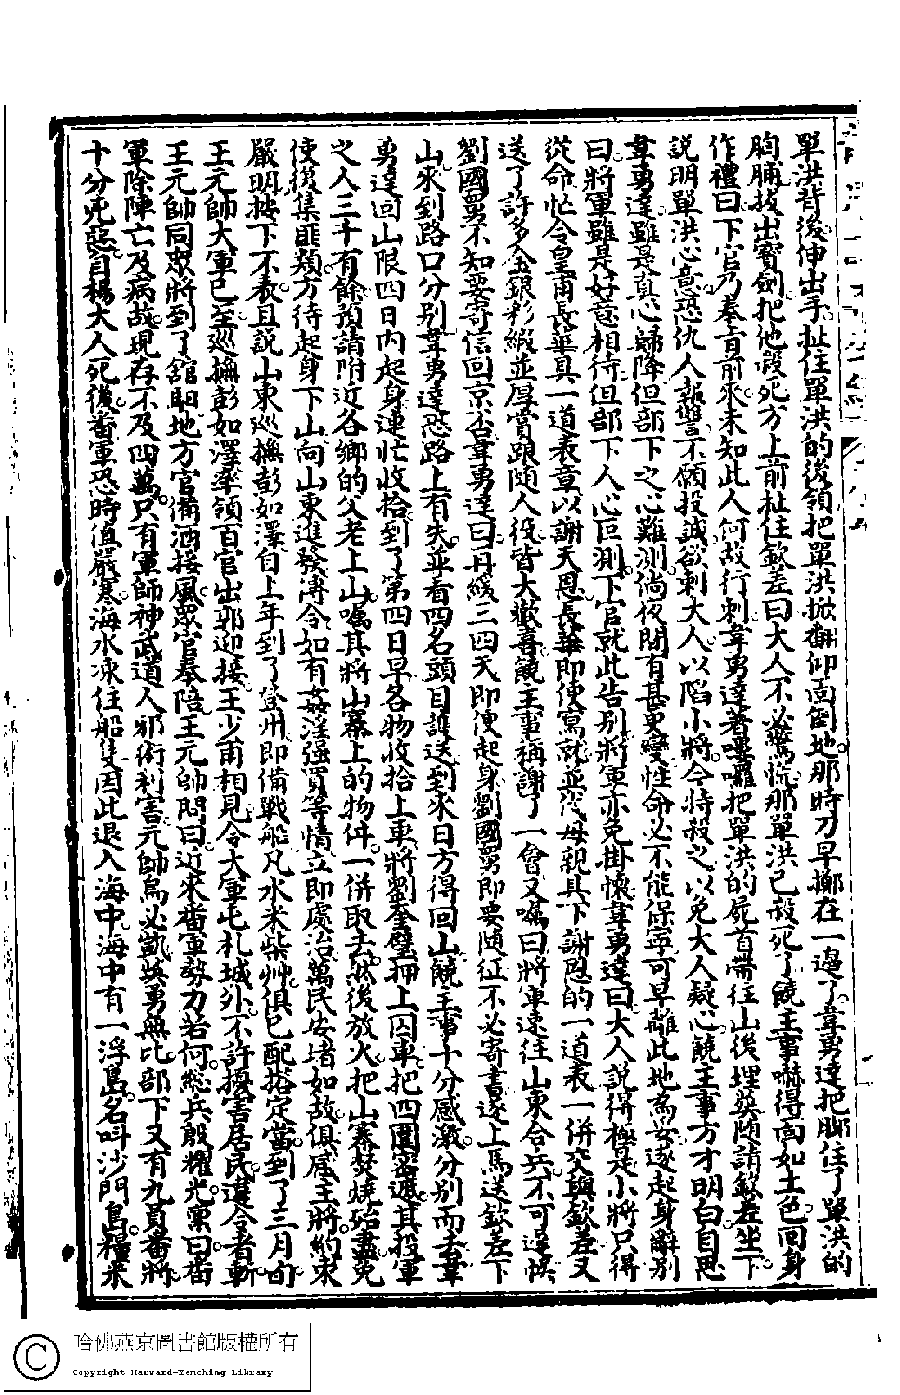 單洪背後伸出手扯住單洪的後領把單洪掀翻仰面倒地那時刀早擲在一邊了韋勇達把脚住了單洪的
胸脯拔出寶劍把他殺死方上前扯住欽差曰大人不必驚慌那單洪已殺死了饒主事嚇得面如土色回身
作禮曰下官乃奉旨前來未知此人何故行刺韋勇達着嘍囉把單洪的屍首帶往山後埋葬隨請欽差坐下
說明單洪心意恐仇人報讐不願投誠欲刺大人以陷小將今特殺之以免大人疑心饒主事方才明白自思
韋勇達雖是真心歸降但部下之心難測倘夜間有甚更變性命必不能保寧可早離此地為妥遂起身辭別
曰將軍雖是好意相待但部下人心叵測下官就此告別將軍亦免掛懷韋勇達曰大人說得極是小將只得
從命忙令皇甫長華具一道表章以謝天恩長華即便寫就並代母親具下謝恩的一道表一併交與欽差又
送了許多金銀彩緞並厚賞跟隨人役皆大歡喜饒主事稱謝了一會又囑曰將軍速往山東合兵不可遲悞
劉國舅不知要寄信回京否韋勇達曰再緩三四天即便起身劉國舅即要隨征不必寄書遂上馬送欽差下
山來到路口分別韋勇達恐路上有失並着四名頭目護送到來日方得回山饒主事十分感激分別而去韋
勇達回山限四日內起身連忙收拾到了第四日早各物收拾上車將劉奎璧押上囚車把四圍密遮其投軍
之人三千有餘預請附近各鄉的父老上山囑其將山寨上的物件一併取去然後放火把山寨焚燒砧盡免
使後集匪類方待起身下山向山東進發傳令如有姦淫强買等情立即處治萬民安堵如故俱屬主將約束
嚴明按下不表且說山東巡撫彭如澤自上年到了登州即備戰船凡水米柴艸俱已配搭定當到了三月旬
王元帥大軍已至巡撫彭如澤率領百官出郭迎接王少甫相見令大軍屯札城外不許擾害居民違令者斬
王元帥同眾將到了舘驲地方官備酒接風眾官奉陪王元帥問曰近來畨軍勢力若何總兵殷耀光禀曰畨
軍除陣亡及病故現存不及四萬只有軍師神武道人邪術利害元帥烏必凱英勇無比部下又有九員畨將
十分兇惡自楊大人死後畨軍恐時值嚴寒海水凍住船隻因此退入海中海中有一浮島名叫沙門島糧米
哈佛燕京圖書館版權所有
Copyright Harvard-Yenching Library